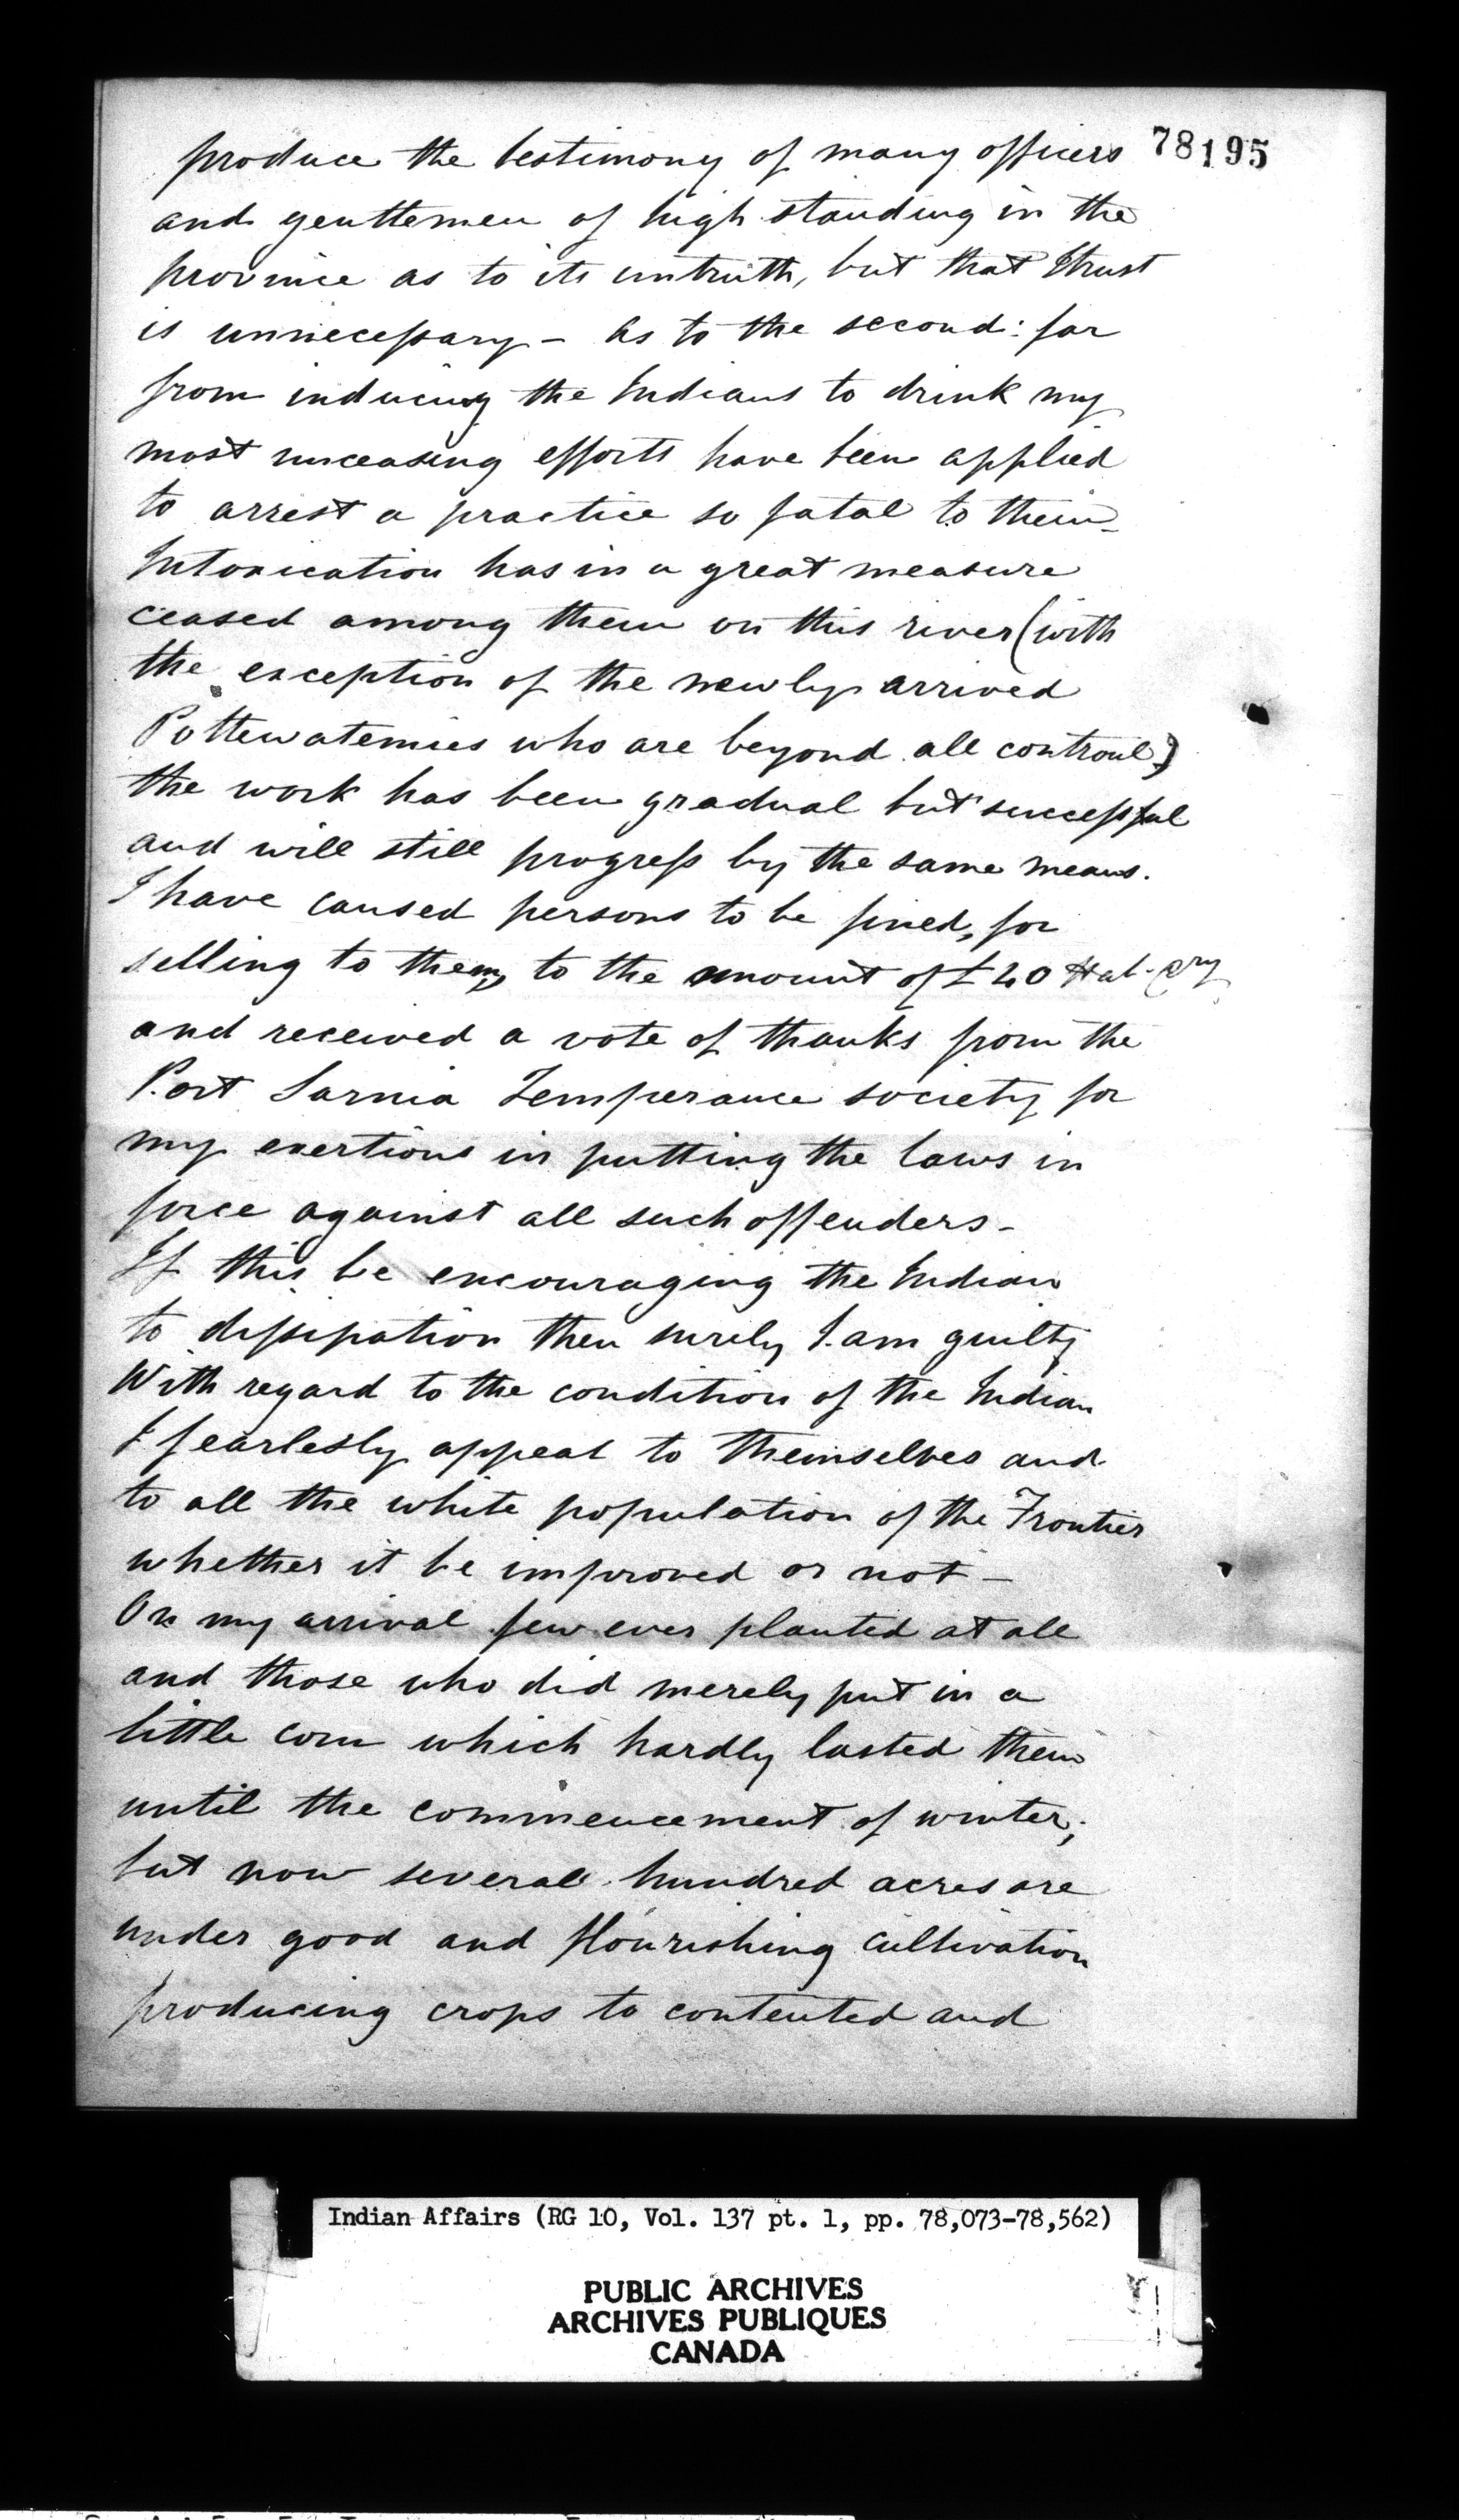 78195
produce the testimony of many officers
and genttemen of high standing in the
province as to its untruth, but that I trust
is unnecessary - As to the second: far
from inducing the Indians to drink my
most unceasing efforts have been applied
to arrest a practice so fatal to them -
Intoxication has in a great measure
ceased among them on this river (with
the exception of the newly arrived
Pottewatemies who are beyond all controul)
the work has been gradual but successful
and will still progress by the same means.
I have caused persons to be fined, for
selling to them, to the amount of £40 Hal. Cry
and received a vote of thanks from the
Port Sarnia Temperance society for
my exertions in putting the laws in
force against all such offenders -
If this be encouraging the Indian
to dissipation then surely I am guilty
With regard to the condition of the Indian
I fearlesly appeal to themselves and
to all the white population of the Frontier
whether it be improved or not -
On my arrival few ever planted at all
and those who did merely put in a
little corn which hardly lasted them
until the commencement of winter;
but now several hundred acres are
under good and flourishing cultivation
producing crops to contented and
Indian Affairs (RG 10, Vol. 137 pt. 1, pp. 78,073-78,562)
PUBLIC ARCHIVES
ARCHIVES PUBLIQUES
CANADA